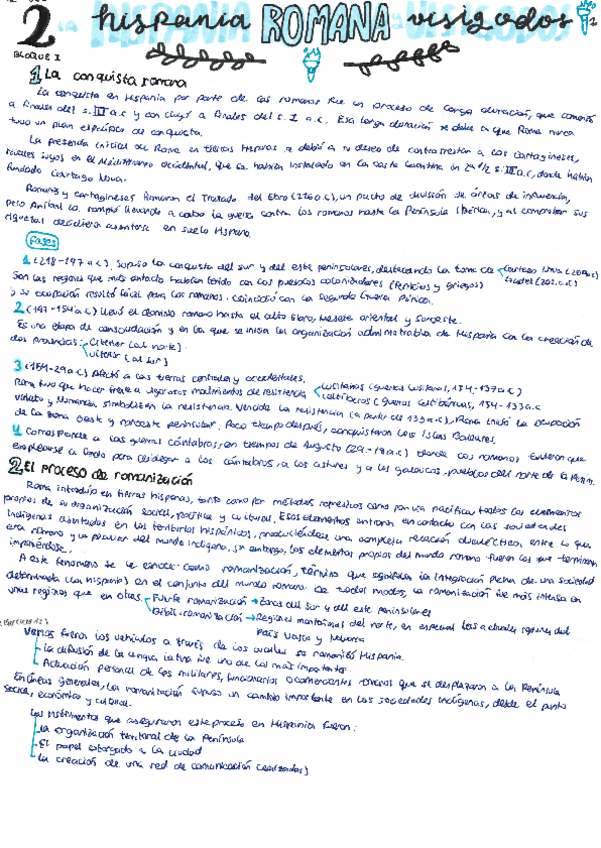 2 LA HISPANIA ROMANA Y VISIGODOS
hispania visigodos 1
BLOQUE I
1 La conquista romana
La conquista en Hispania por parte de los romanos fue un proceso de larga duración, que comenzó
a finales del s. III a.C y concluyó a finales del s. I a.C. Esa larga duración se debe a que Roma nunca
tuvo un plan específico de conquista.
La presencia inicial de Roma en tierras hispanas se debió a su deseo de contrarrestar a los cartagineses,
rivales suyos en el Mediterráneo occidental, que se habían instalado en la costa levantina en 2ª 1/2 s. III a.C, donde habían
fundado Cartago Nova.
Romanos y cartagineses firmaron el Tratado del Ebro (226a.C), un pacto de división de áreas de influencia,
pero Aníbal lo rompió llevando a cabo la guerra contra los romanos hasta la Península Ibérica, y al comprobar sus
riquezas decidiera asentarse en suelo hispano.
Fases
1 (218-197 a.C) Supuso la conquista del sur y del este peninsulares, destacando la toma de Cartago Nova (209a.C)
Gades (202a.C)
Son las regiones que más contacto habían tenido con los pueblos colonizadores (fenicios y griegos)
y su ocupación resultó fácil para los romanos. Coincidió con la Segunda Guerra Púnica.
2 (197-154a.C) Llevó el dominio romano hasta el alto Ebro, Meseta oriental y Suroeste.
Es una etapa de consolidación y en la que se inicia la organización administrativa de Hispania con la creación de
dos provincias: Citerior (al norte)
Ulterior (al sur)
3 (154-29a.C) Afectó a las tierras centrales y occidentales.
Roma tuvo que hacer frente a vigorosos movimientos de resistencia Lusitanos (guerras lusitanas, 154-137a.C)
Celtíberos (guerras celtibéricas, 154-133a.C
Viriato y Numancia simbolizan la resistencia. Vencida la resistencia (a partir de 133a.C), Roma inició la ocupación
de la zona oeste y noroeste peninsular. Poco tiempo después, conquistaron las Islas Baleares.
4 Corresponde a las guerras cántabras, en tiempos de Augusto (29-19a.C) donde los romanos tuvieron que
emplearse a fondo para doblegar a los cántabros, a los astures y a los galaicos, pueblos del norte de la Penín.
2 El proceso de romanización
Roma introdujo en tierras hispanas, tanto por métodos represivos como por vía pacífica, todos los elementos
propios de su organización social, política y cultural. Esos elementos entraron en contacto con las sociedades
indígenas asentadas en los territorios hispánicos, produciéndose una compleja relación dialéctica entre lo que
era romano y lo peculiar del mundo indígena, sin embargo, los elementos propios del mundo romano fueron los que terminaron
imponiéndose.
A este fenómeno se le conoce como romanización, término que significa la integración plena de una sociedad
determinada (la hispana) en el conjunto del mundo romano. De todos modos, la romanización fue más intensa en
unas regiones que en otras. Fuerte romanización → zonas del sur y del este peninsulares
Débil romanización → Regiones montañosas del norte, en especial las actuales regiones del
País Vasco y Navarra
Varios fueron los vehículos a través de los cuales se romanizó Hispania.
La difusión de la lengua latina fue uno de los más importantes.
Actuación personal de los militares, funcionarios o comerciantes romanos que se desplazaron a la Península
En líneas generales, la romanización supuso un cambio importante en las sociedades indígenas, desde el punto
social, económico y cultural.
Los instrumentos que aseguraron este proceso en Hispania fueron:
La organización territorial de la Península
El papel otorgado a la ciudad
La creación de una red de comunicación (calzadas)